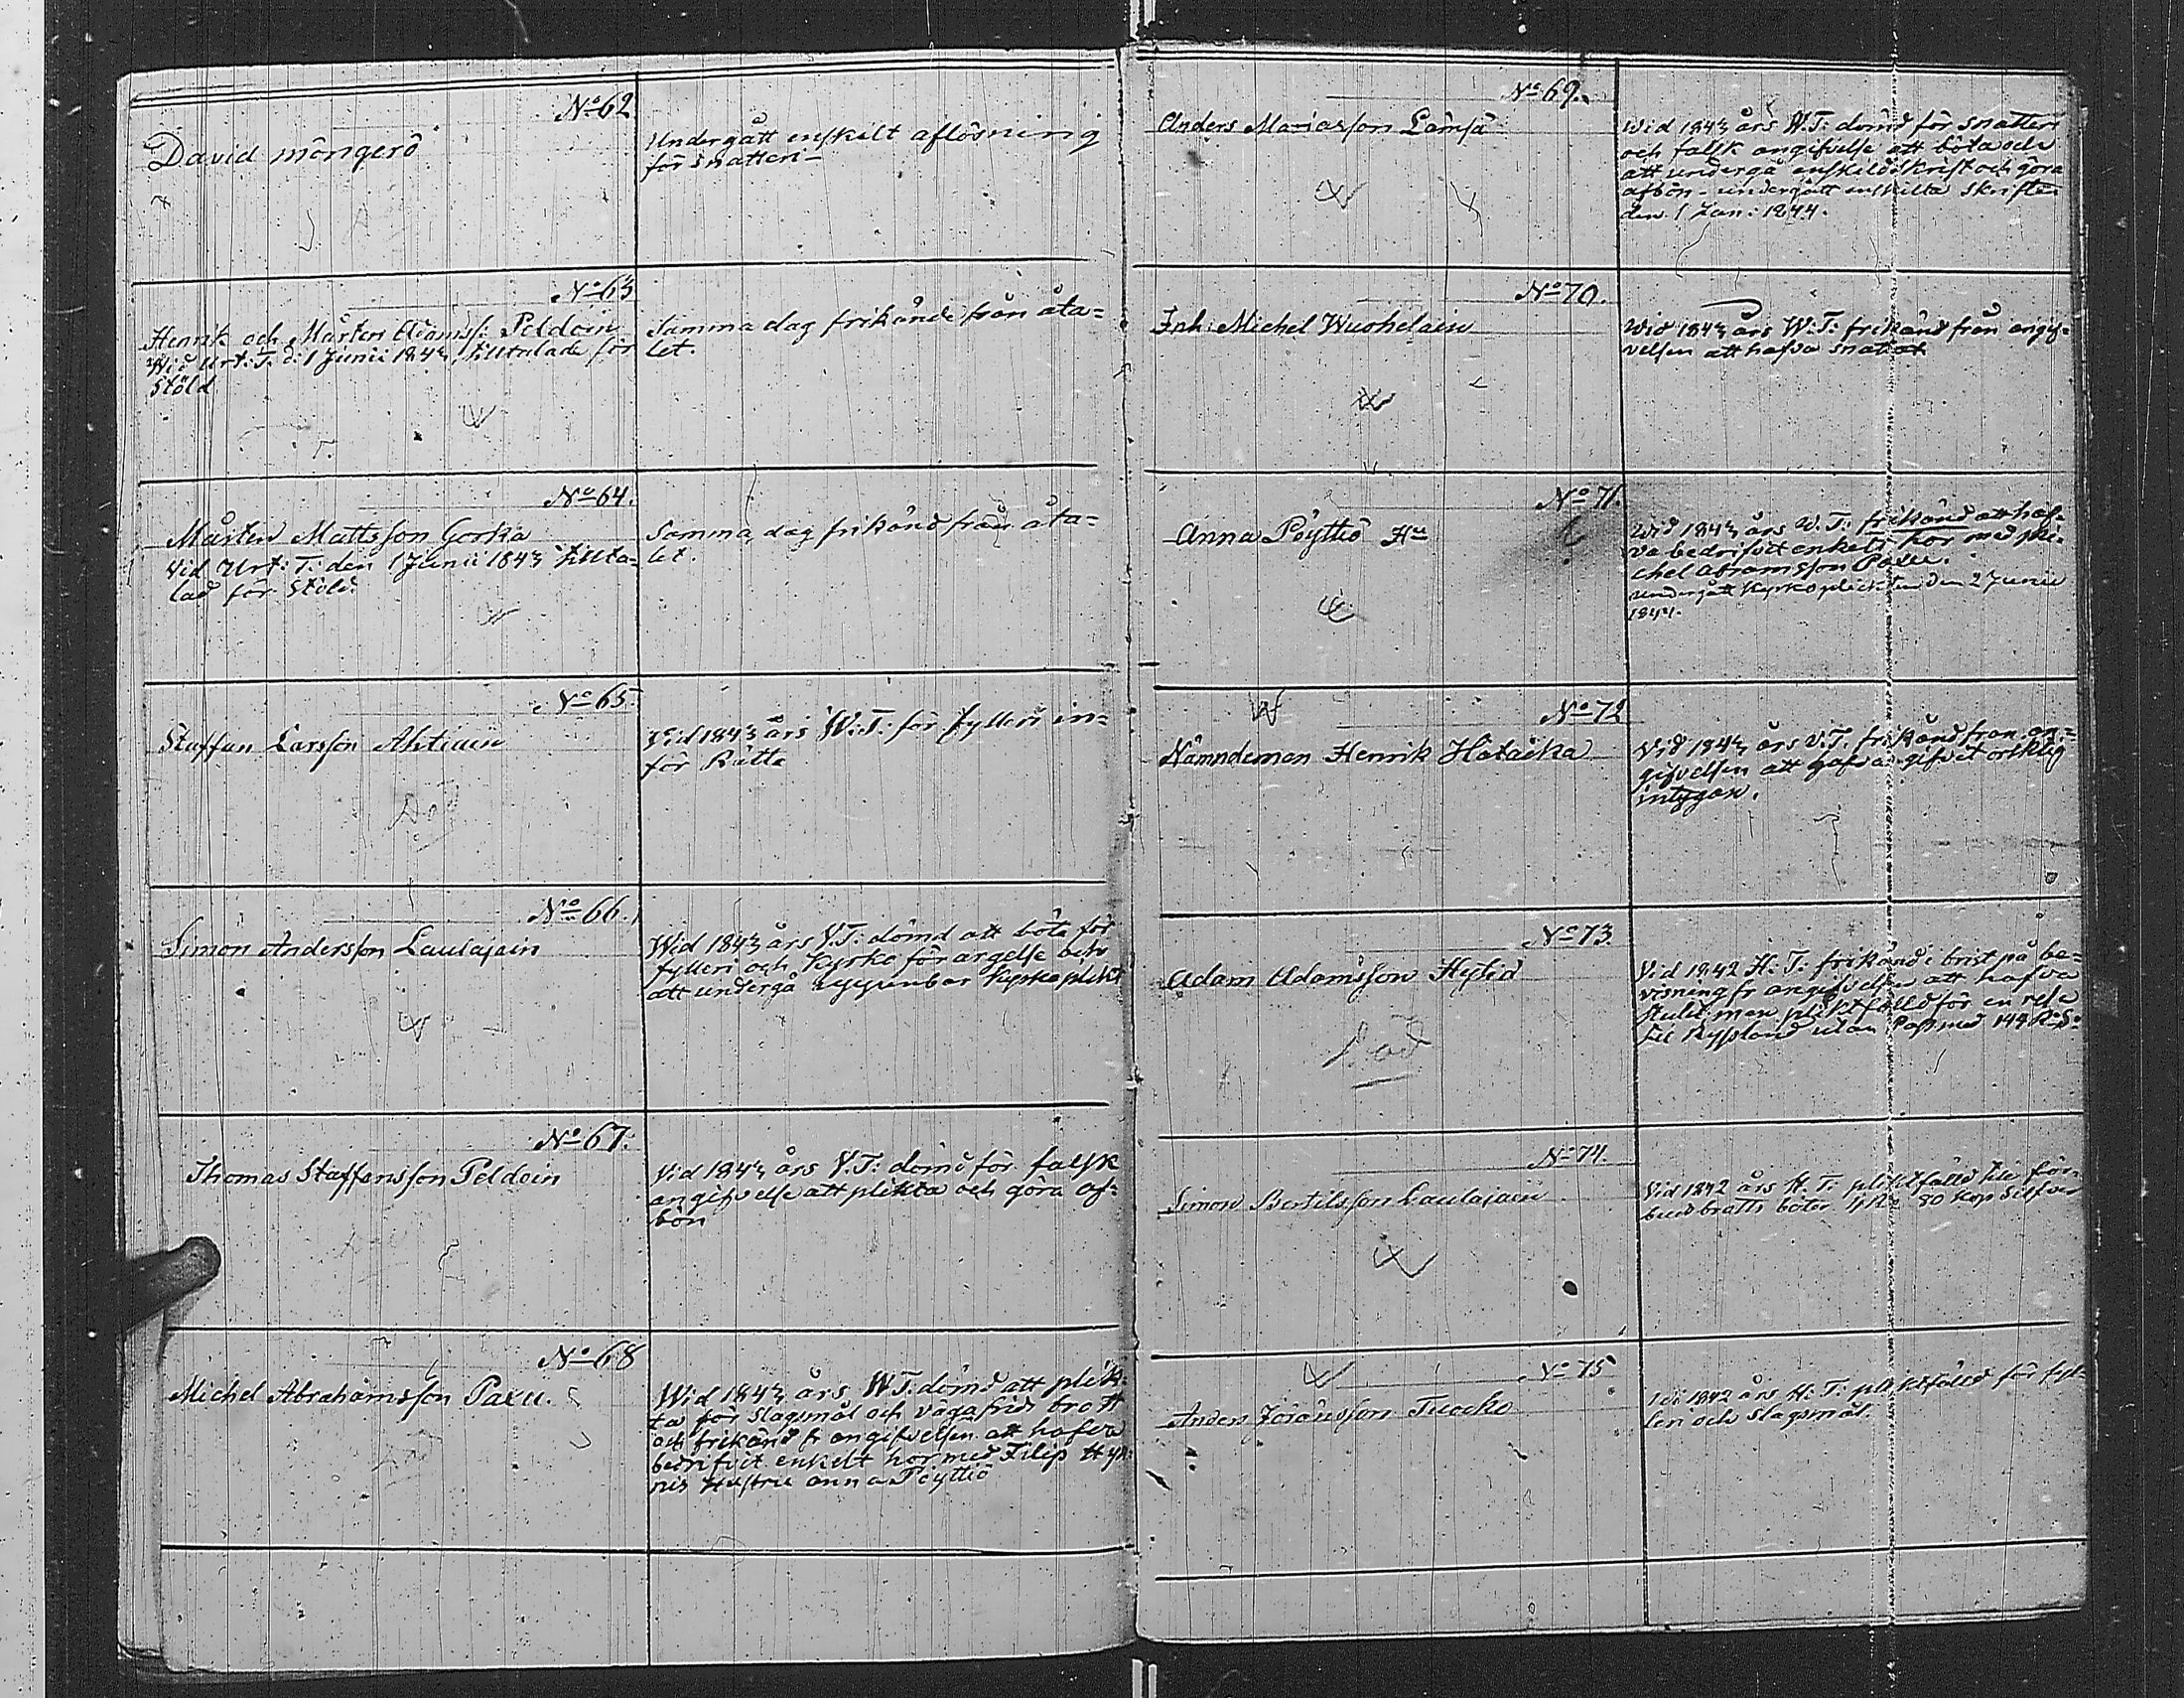 No 62
David Möngerö
Undergått enskilt aflösning
för snatteri –
No 63
Henrik och Mårten Adamss: Peldoin
Wid Urt: T. d: 1 Junii 1843, tilltalade för
Stöld
Samma dag frikände från åta=
let.
No 64.
Mårten Mattsson Gorka
Vid Urt: T: den 1 Junii 1843 tillta=
lad för Stöld.
Samma dag frikänd från åta=
let.
No 65.
Staffan Larsson Ahtiain
Vid 1843 års W.T: för fylleri in=
för Rätta
Död
No 66.
Simon Andersson Laulajain
Wid 1843 års V.T: dömd att böta för
fylleri och Kyrko förargelse och
att undergå uppenbar Kyrkoplikt
No 67.
Thomas Staffansson Peldoin
Vid 1843 års V.T: dömd för falsk
angifvelse att plikta och göra af=
bön
No 68
Michel Abrahamsson Paxu.
Wid 1843 års W T: dömd att plik=
ta för slagsmål och vägafrids brott
och frikänd fr angifvelsen att hafva
bedrifvit enkelt hor med Filip
Hustru Anna Pöyttiö
No 69.
Anders Mariasson Lämsä
Wid 1843 års W.T: dömd för snatteri
och falsk angifvelse att böta och
att undergå enskild skrift och göra
afbön – undergått enskilta skriften
den 1 Jan: 1844.
No 70.
Inh: Michel Wuohelain
Wid 1843 års W:T: frikänd från angif=
velsen att hafva snattat
No 71.
Anna Pöyttiö Hu
Wid 1843 års W.T: frikänd att haf=
va bedrifvit enkelt hor med Mi=
chel Abramsson Paxu.
undergått Kyrkoplickten den 2 Junii
1844.
No 72
Nämndeman Henrik Hätäikä
Vid 1843 års V.T. frikänd från an=
gifvelsen att hafva gifvit orsktig
intygan.
No 73
Adam Adamsson Hylid
Vid 1842 H: T: frikänd i brist på be=
visning fr angifvelsen att hafva
stulit men pliktfälld för en resa
till Ryssland utan Pass med 144 Ro So
Död
No 74.
Simon Bertilsson Laulajain
Vid 1842 års H. T: pliktfälld till för=
bud brotts böter 80 Kop Silfver
No 75
Anders Jöransson Tuocko
Vid 1842 års H: T: pliktfälld för fyl=
leri och slagsmål.